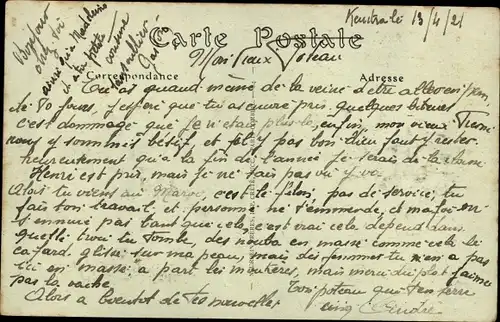 Kenitra le 13/4/21
Bonjour
chez toi
ainsi qu'à Madeleine
et à ta petite
cousine
Carte Postale
Mon vieux Poteau
Correspondance
Adresse
Tu as quand même de la veine d'être allé en perm
de 20 jours, j'espère que tu as encore pris quelques bitures
c'est dommage que je n'étais plus là, enfin, mon vieux
nous y sommes et fil pas bon dieu faut y rester
heureusement qu'à la fin de l'année je serais de la
Henri est pris, mais je ne sais pas où il va
Alors tu viens au Maroc, c'est le filon, pas de service, tu
fais ton travail et personne ne t'emmerde, et ma foi on
s'ennuie pas tant que cela, c'est vrai cela dépend dans
quelle trou tu tombe, des nouba en masse comme cela le
cafard glisse sur ma peau, mais des femmes tu n'en a pas
ici en masse, a part les mouheres, mais merci du plat j'aime
pas la vache
Alors a bientot de tes nouvelles
Ton poteau qui t'en serre
cinq André